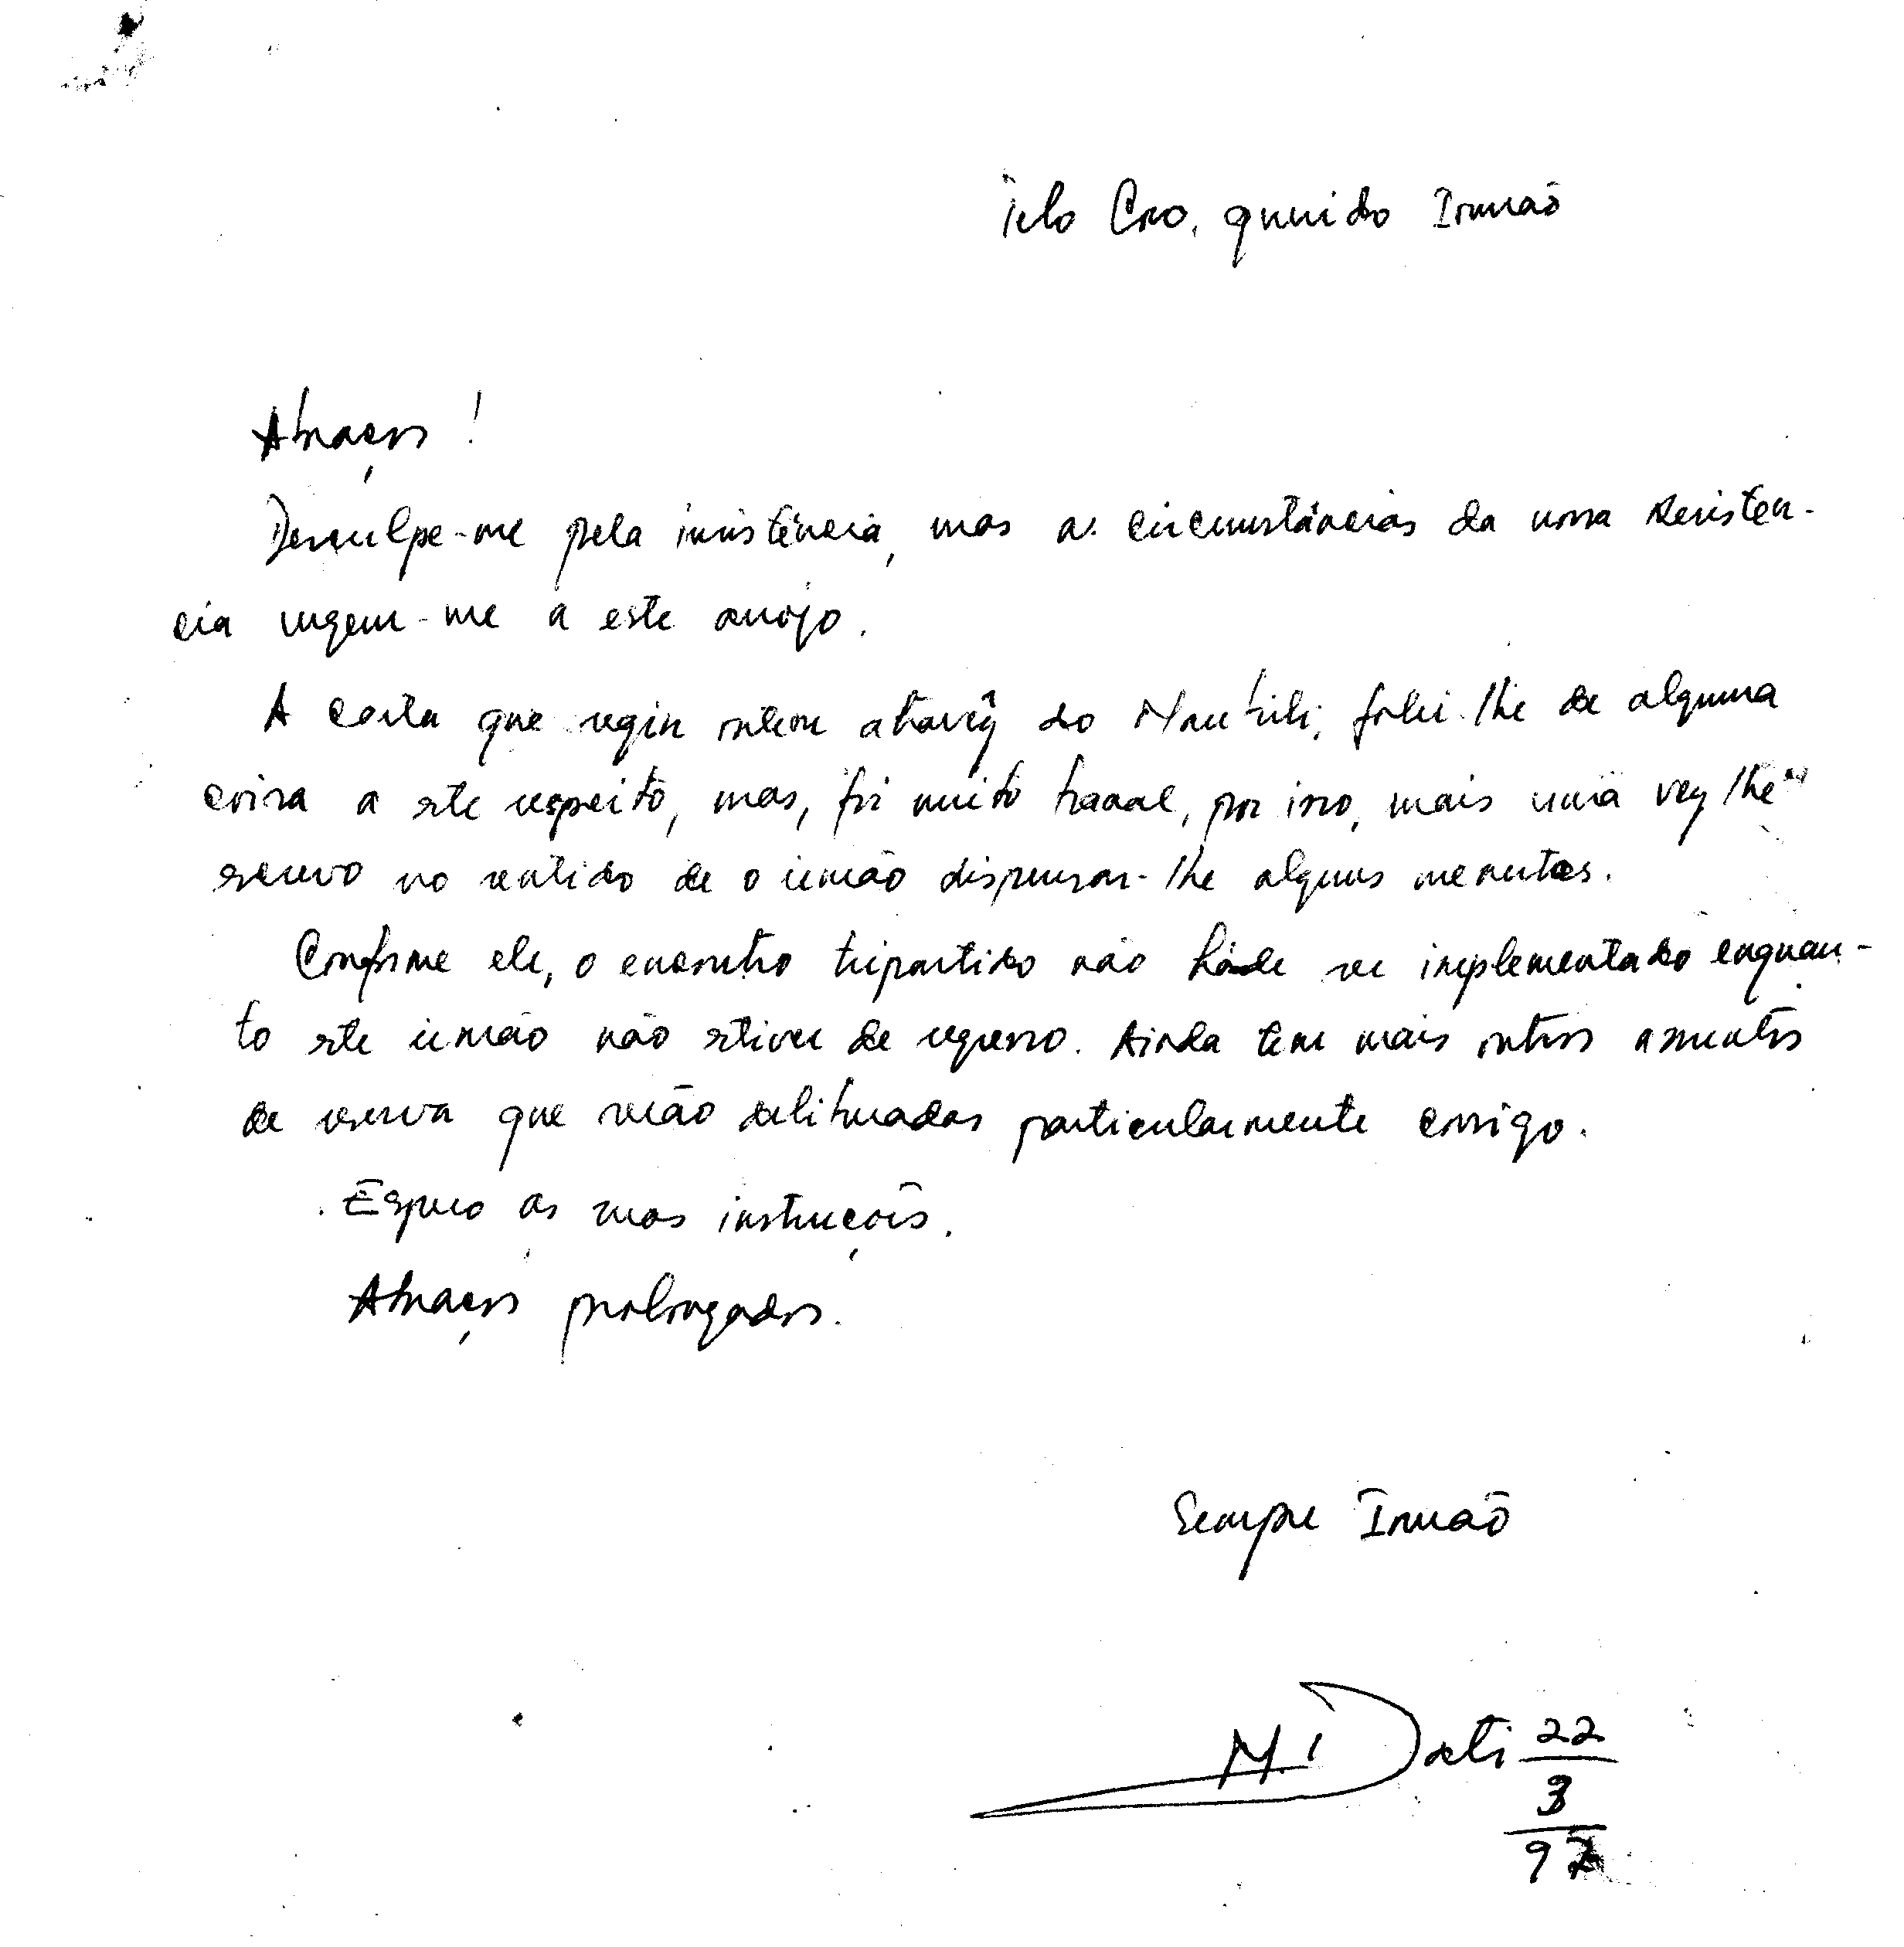 querido Irmão
Abraços!
Desculpe-me pela insistência, mas as circunstâncias da nossa Resistên-
cia urgem-me a este arrojo.
A carta que seguiu ontem através do falei-lhe de alguma
coisa a este respeito, mas, foi muito por isso, mais uma vez lhe
escrevo no sentido de o irmão dispensar-lhe alguns
Conforme ele, o encontro tripartido não háde ser implementado enquan-
to este irmão não estiver de regresso. Ainda tem mais outros assuntos
de reserva que serão particularmente consigo.
Espero as suas instruções.
Abraços prolongados.
Sempre Irmão
22
3
97